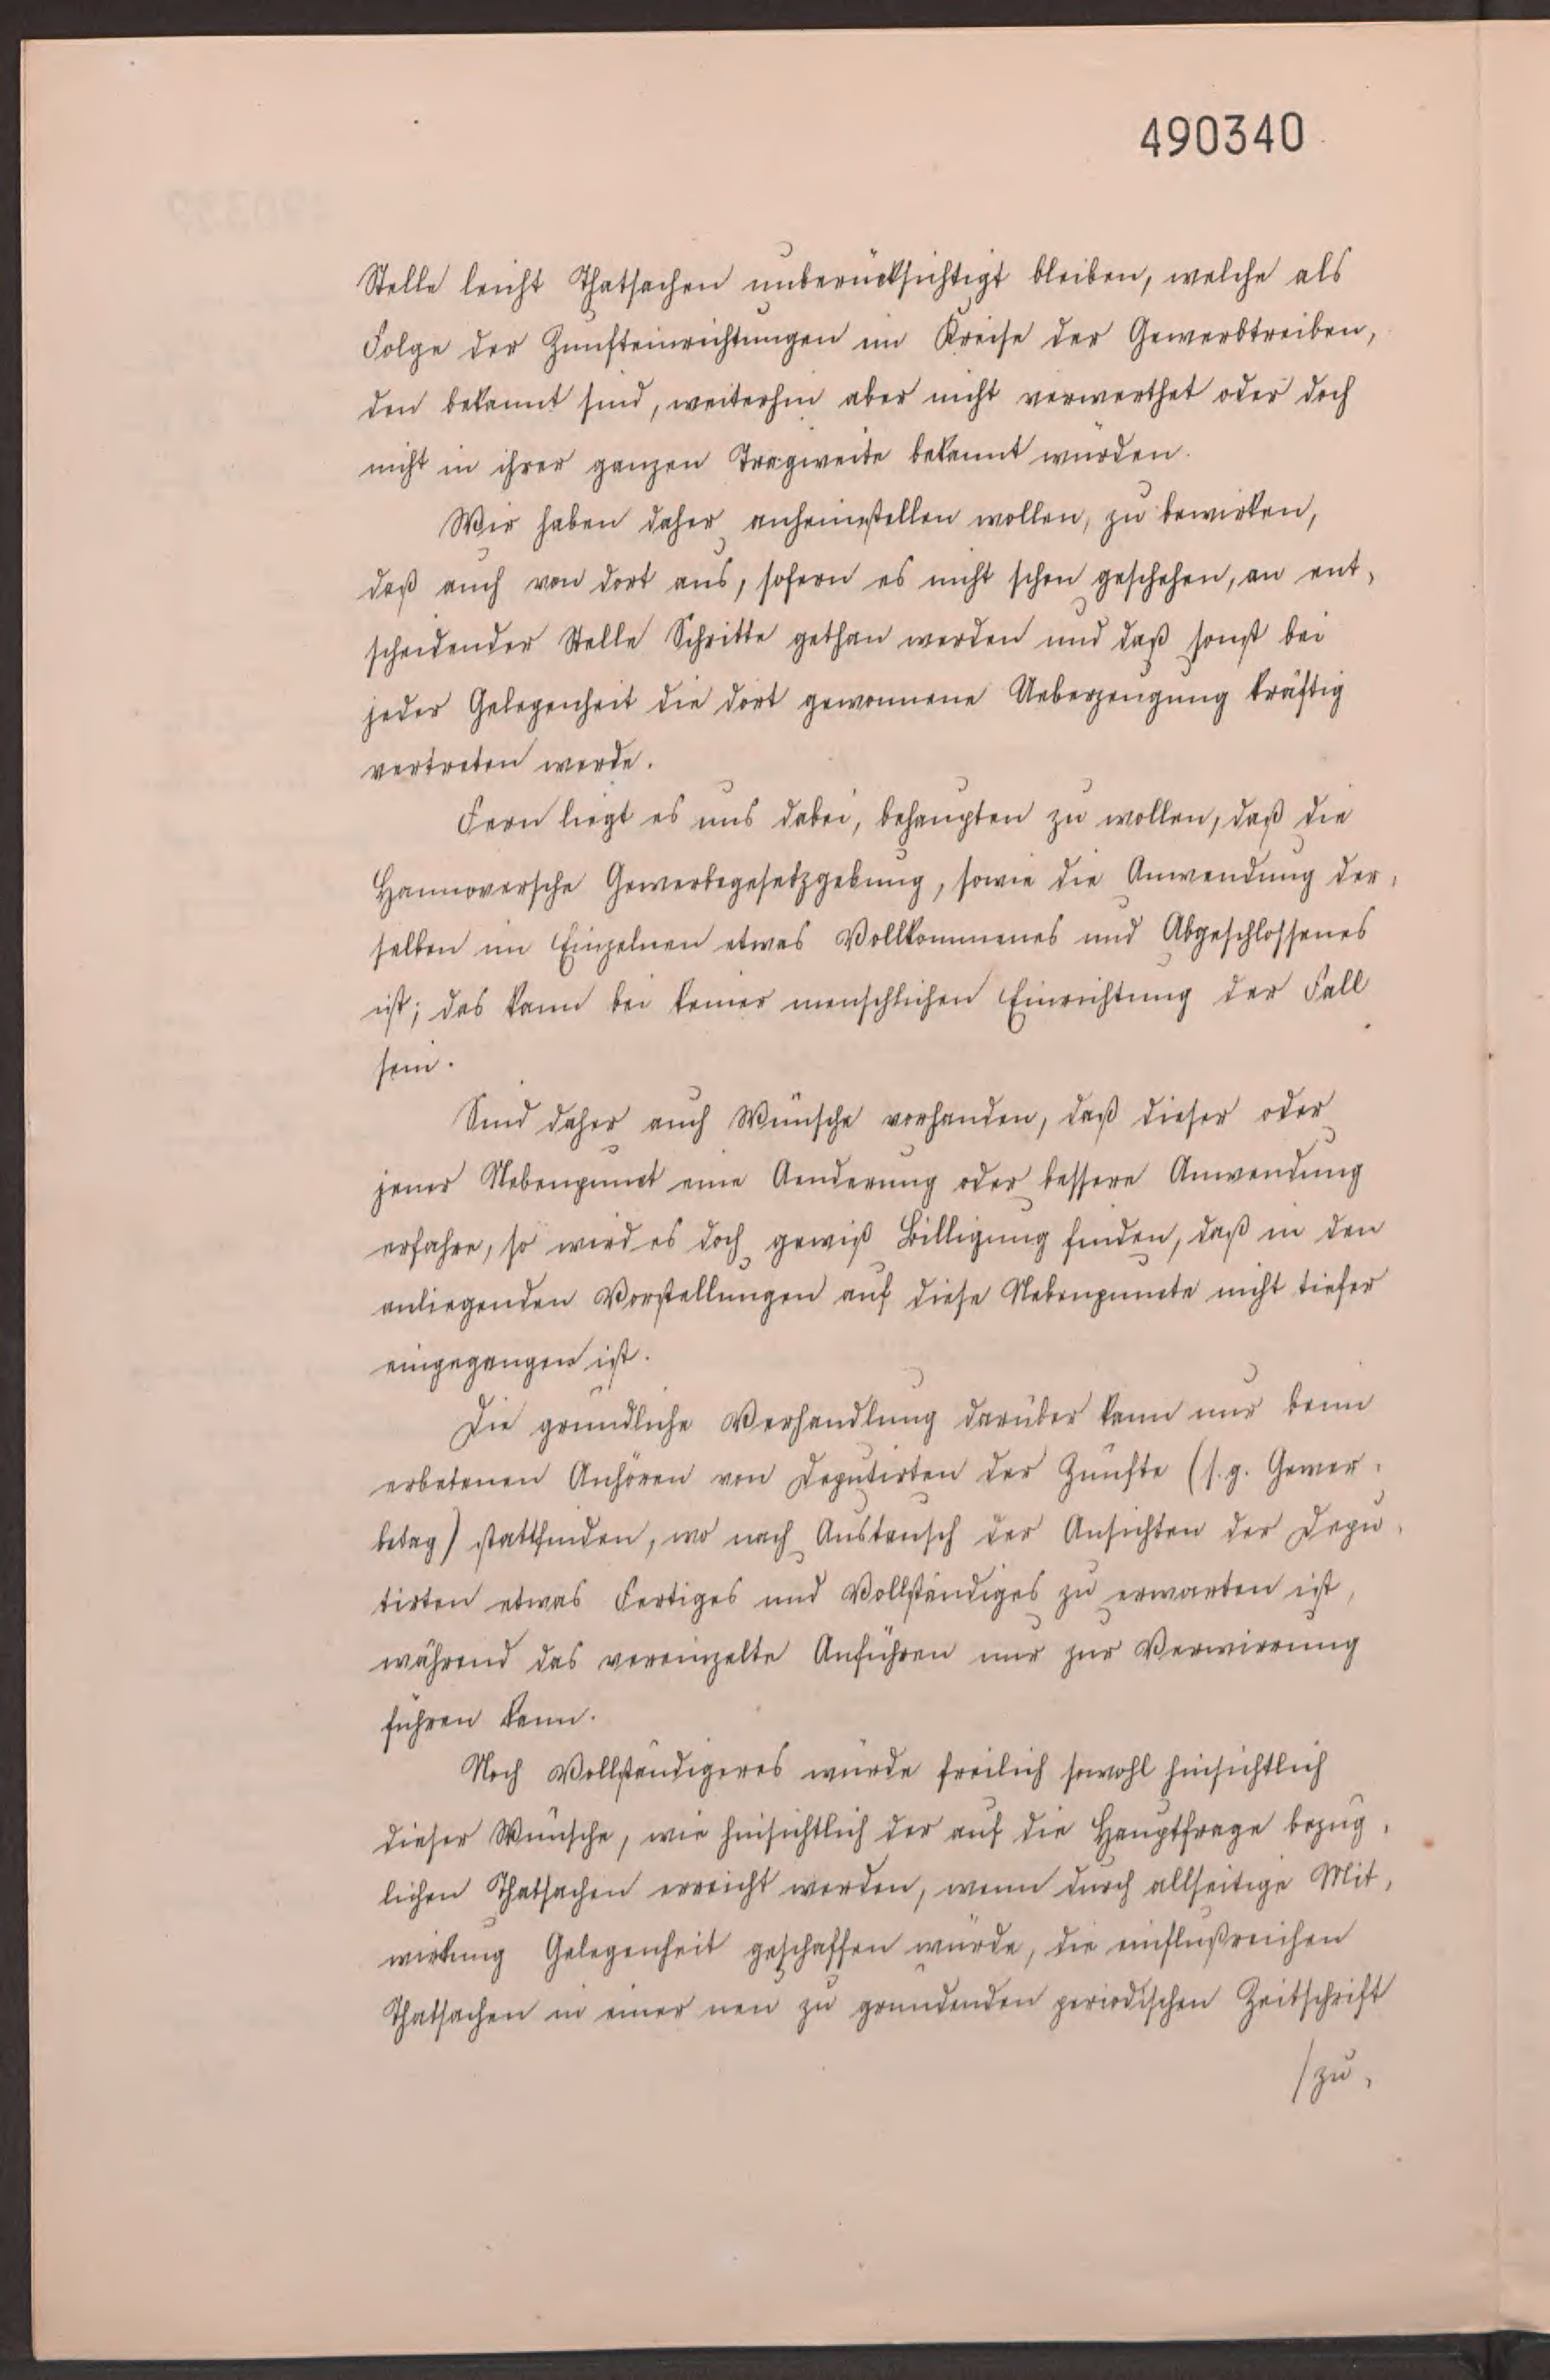 490340
Stelle leicht Thatsachen unberücksichtigt bleiben, welche als
Folge der Zunfteinrichtungen im Kreise der Gewerbtreiben,
den bekannt sind, weiterhin aber nicht verwerthet oder doch
nicht in ihrer ganzen Tragweite bekannt würden.
Wir haben daher anheimstellen wollen, zu bewirken,
daß auch von dort aus, sofern es nicht schon geschehen, an ent,
scheidender Stelle Schritte gethan werden und daß sonst bei
jeder Gelegenheit die dort gewonnene Ueberzeugung kräftig
vertreten werde.
Fern liegt es uns dabei, behaupten zu wollen, daß die
Hannoversche Gewerbegesetzgebung, sowie die Anwendung der,
selben im Einzelnen etwas Vollkommenes und Abgeschlossenes
ist; das kann bei keiner menschlichen Einrichtung der Fall
sein.
Sind daher auch Wünsche vorhanden, daß dieser oder
jener Nebenpunct eine Aenderung oder bessere Anwendung
erfahre, so wird es doch gewiß Billigung finden, daß in den
anliegenden Vorstellungen auf diese Nebenpuncte nicht tiefer
eingegangen ist.
Die gründliche Verhandlung darüber kann nur beim
erbetenen Anhören von Deputirten der Zünfte (s.g. Gewer,
betag) stattfinden, wo nach Austausch der Ansichten der Depu,
tirten etwas Fertiges und Vollständiges zu erwarten ist,
während das vereinzelte Anführen nur zur Verwirrung
führen kann.
Noch Vollständigeres würde freilich sowohl hinsichtlich
dieser Wünsche, wie hinsichtlich der auf die Hauptfrage bezüg,
lichen Thatsachen erreicht werden, wenn durch allseitige Mit,
wirkung Gelegenheit geschaffen würde, die einflußreichen
Thatsachen in einer neu zu gründenden periodischen Zeitschrift
/zu,